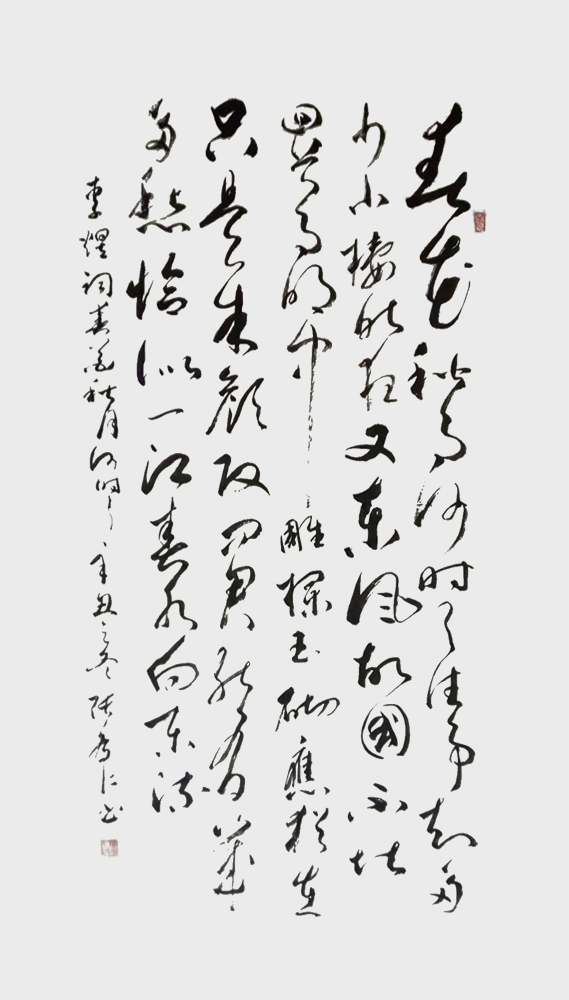 春花秋月何时了往事知多
少小樓昨夜又東風故國不堪
回首月明中雕欄玉砌應猶在
只是朱顏改問君能有幾
多愁恰似一江春水向東流
李煜詞春花秋月何时了辛丑之冬